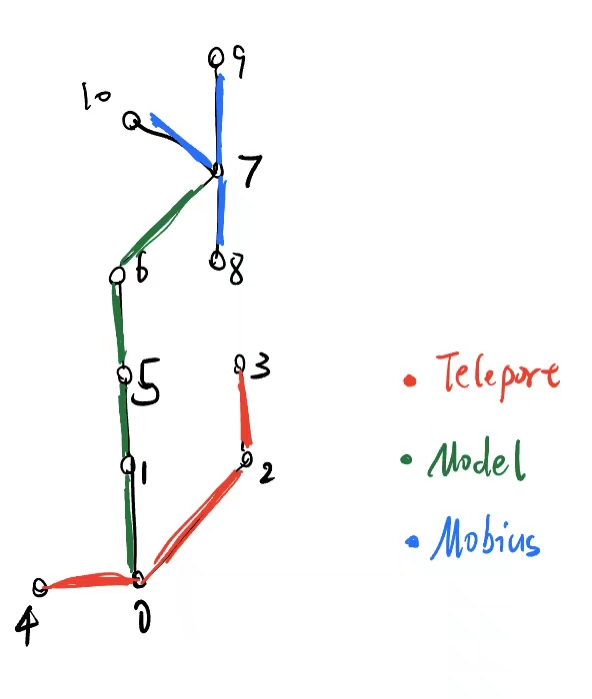 9
10
7
6
8
5
3
1
2
4
0
Teleport
Model
Mobius